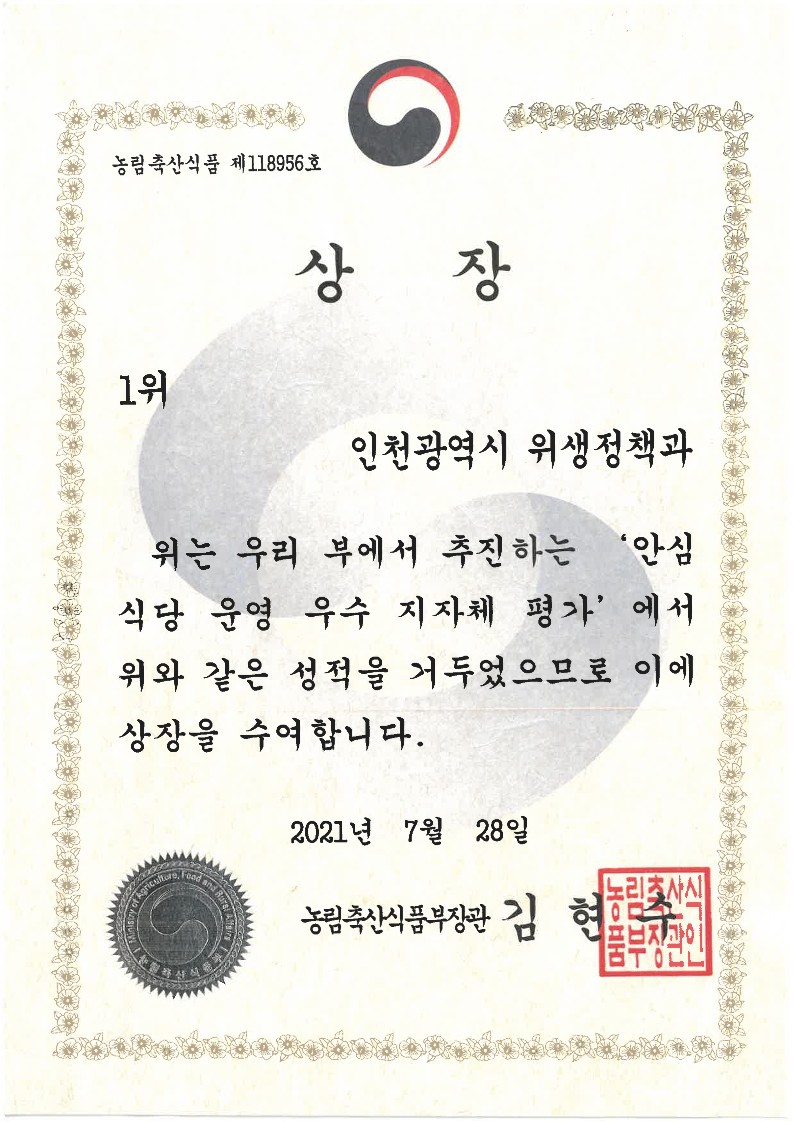 농림축산식품 제118956호
상 장
1위
인천광역시 위생정책과
위는 우리 부에서 추진하는 ‘안심
식당 운영 우수 지자체 평가’ 에서
위와 같은 성적을 거두었으므로 이에
상장을 수여합니다.
2021년 7월 28일
농림축산식품부장관 김 현 수
농림축산식
품부장관인
Ministry of Agriculture, Food and Rural Affairs
농림축산식품부